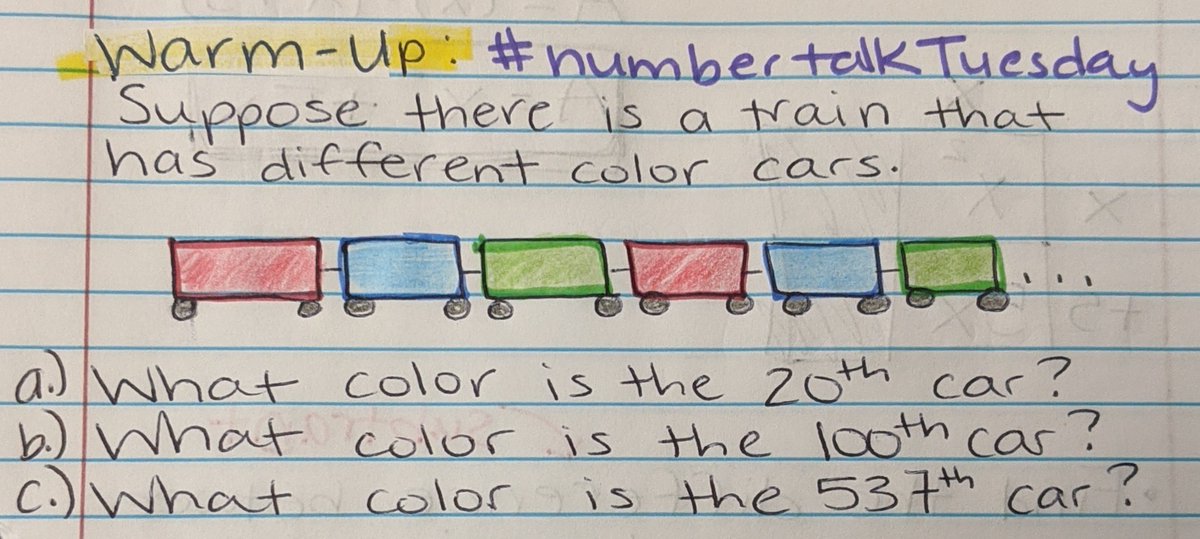 Warm-Up: #numbertalkTuesday
Suppose there is a train that
has different color cars.
a.) What color is the 20th car?
b.) What color is the 100th car?
c.) What color is the 537th car?